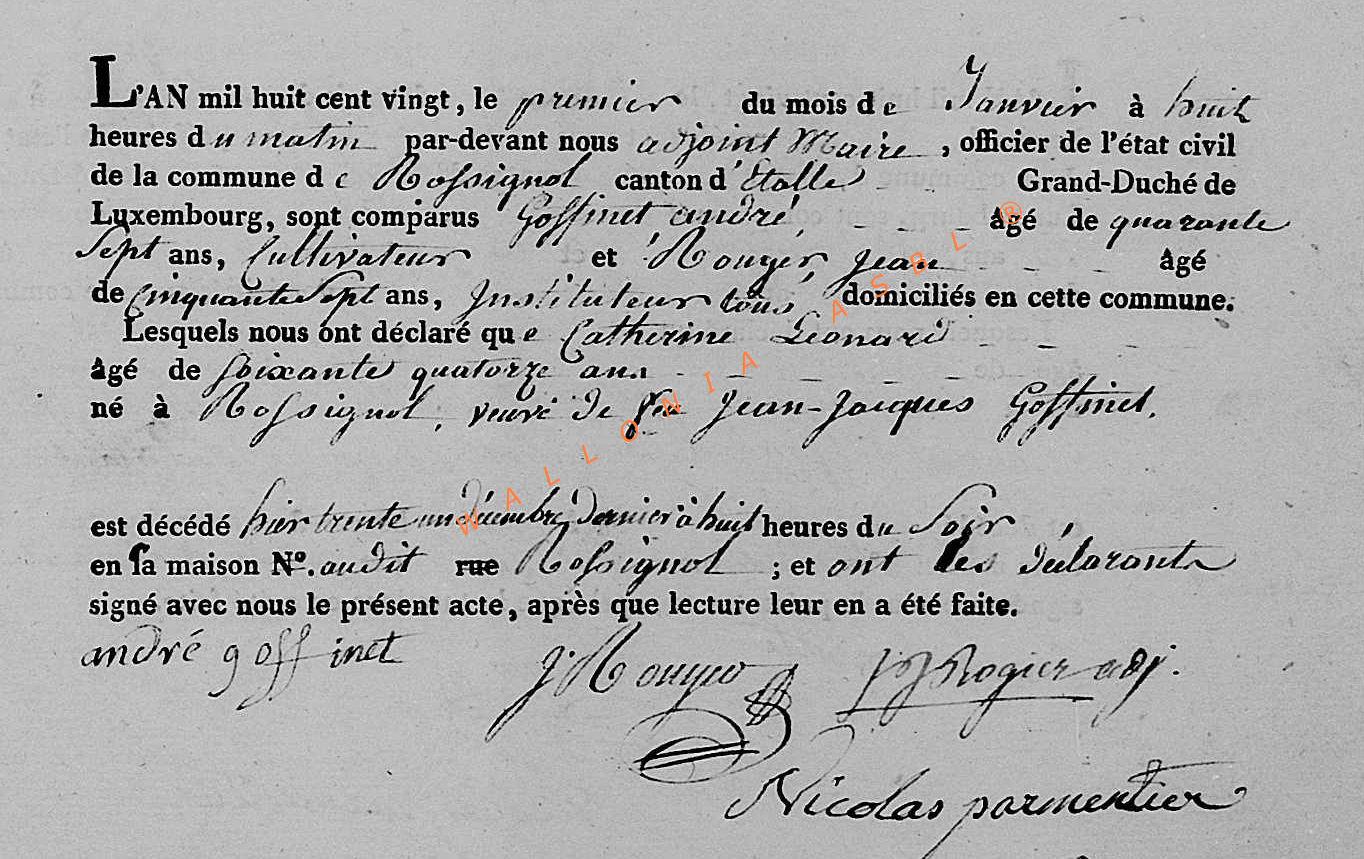 L'AN mil huit cent vingt, le premier du mois de Janvier à huit
heures du matin par-devant nous adjoint Maire, officier de l'état civil
de la commune de Rossignol canton d'Etalle Grand-Duché de
Luxembourg, sont comparus Goffinet andré, âgé de quarante
Sept ans, Cultivateur et Rouyer, Jean âgé
de Cinquante Sept ans, Instituteur tous domiciliés en cette commune.
Lesquels nous ont déclaré que Catherine Léonard
âgé de Soixante quatorze ans
né à Rossignol, veuve de feu Jean-Jacques Goffinet.
est décédé hier trente un décembre dernier à huit heures du Soir
en sa maison No. audit rue Rossignol ; et ont les déclarants
signé avec nous le présent acte, après que lecture leur en a été faite.
andré goffinet J. Rouyer Rogier adj.
Nicolas parmentier
WALLONIA ASBL ®